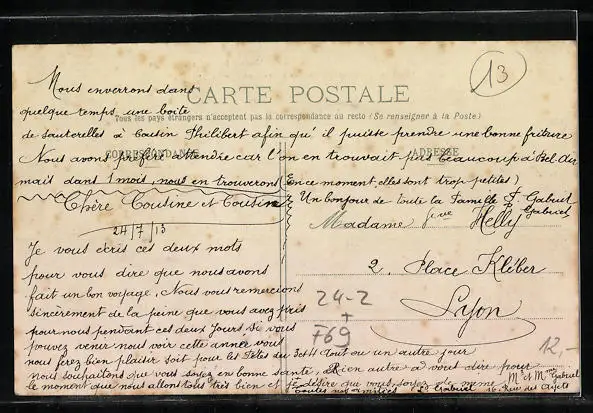 13
Nous enverrons dans
CARTE POSTALE
quelque temps une boîte
Tous les pays étrangers n'acceptent pas la correspondance au recto (Se renseigner à la Poste)
de sauterelles à Cousin Philibert afin qu'il puisse prendre une bonne friture
CORRESPONDANCE
ADRESSE
Nous avons préféré attendre car l'on en trouvait pas beaucoup à Bel-Air
mais dans 1 mois, nous en trouverons (En ce moment, elles sont trop petites)
Un bonjour de toute la Famille Gabriel
Chère Cousine et Cousine
24/7/13
Madame Jve Helly
2, Place Kléber
Lyon
Je vous écris ces deux mots
pour vous dire que nous avons
fait un bon voyage. Nous vous remercions
sincèrement de la peine que vous avez pris
pour nous pendant ces deux jours si vous
pouvez venir nous voir cette année vous
nous ferez bien plaisir soit pour les fêtes du 3 et 4 Août ou un autre jour
nous souhaitons que vous soyez en bonne santé, Rien autre à vous dire pour
le moment que nous allons tous très bien et je désire que vous soyez de même
toutes nos amitiés Gabriel
M et Mme Gabriel
16, Rue des
24-2
+
F69
12,-